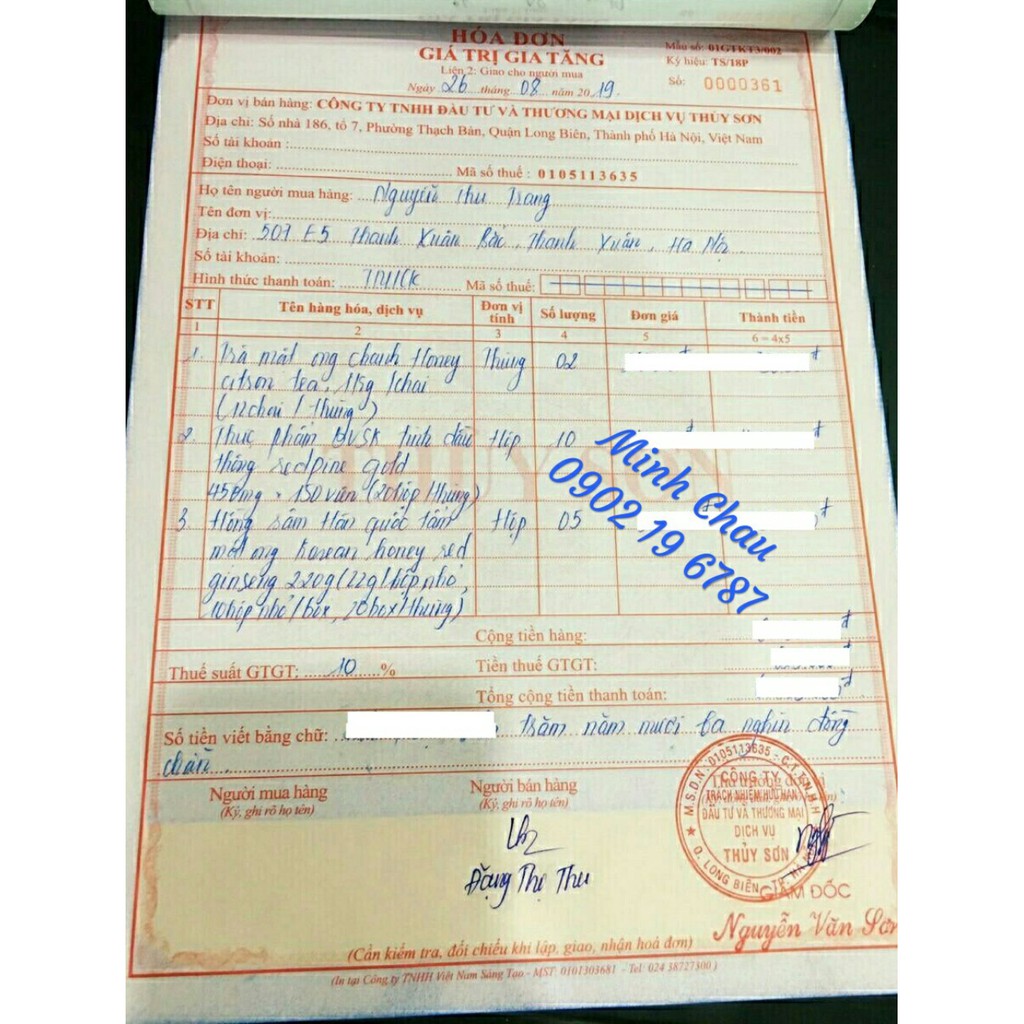 HÓA ĐƠN
GIÁ TRỊ GIA TĂNG
Liên 2: Giao cho người mua
Ngày 26 tháng 08 năm 2019.
Mẫu số: 01GTKT3/002
Ký hiệu: TS/18P
Số: 0000361
Đơn vị bán hàng: CÔNG TY TNHH ĐẦU TƯ VÀ THƯƠNG MẠI DỊCH VỤ THỦY SƠN
Địa chỉ: Số nhà 186, tổ 7, Phường Thạch Bàn, Quận Long Biên, Thành phố Hà Nội, Việt Nam
Số tài khoản:
Điện thoại: Mã số thuế: 0105113635
Họ tên người mua hàng: Nguyễn Thu Trang
Tên đơn vị:
Địa chỉ: 507 E5 Thanh Xuân Bắc, Thanh Xuân, Hà Nội
Số tài khoản:
Hình thức thanh toán: TM/CK Mã số thuế:
STT Tên hàng hóa, dịch vụ Đơn vị tính Số lượng Đơn giá Thành tiền
1 2 3 4 5 6 = 4x5
1. Trà mật ong chanh Honey Thùng 02 đ đ
citron tea, 1kg/chai
(12chai/thùng)
2. Thực phẩm BVSK tinh dầu Hộp 10 đ đ
thông redpine gold
450mg × 150 viên (20hộp/thùng)
3. Hồng sâm Hàn quốc tẩm Hộp 05 đ
mật ong Korean honey red
ginseng 220g (22g/hộp nhỏ,
10hộp nhỏ/box, 20box/thùng)
Minh Chau
0902 19 6787
Cộng tiền hàng: đ
Thuế suất GTGT: 10 % Tiền thuế GTGT: đ
Tổng cộng tiền thanh toán: đ
Số tiền viết bằng chữ: trăm năm mươi ba nghìn đồng
chẵn.
Người mua hàng
(Ký, ghi rõ họ tên)
Người bán hàng
(Ký, ghi rõ họ tên)
Đặng Thị Thu
M.S.D.N: 0105113635 - C.T.T.N.H.H
CÔNG TY
TRÁCH NHIỆM HỮU HẠN
ĐẦU TƯ VÀ THƯƠNG MẠI
DỊCH VỤ
THỦY SƠN
Q. LONG BIÊN - TP. HÀ NỘI
GIÁM ĐỐC
Nguyễn Văn Sơn
(Cần kiểm tra, đối chiếu khi lập, giao, nhận hoá đơn)
(In tại Công ty TNHH Việt Nam Sáng Tạo - MST: 0101303681 - Tel: 024 38727300)